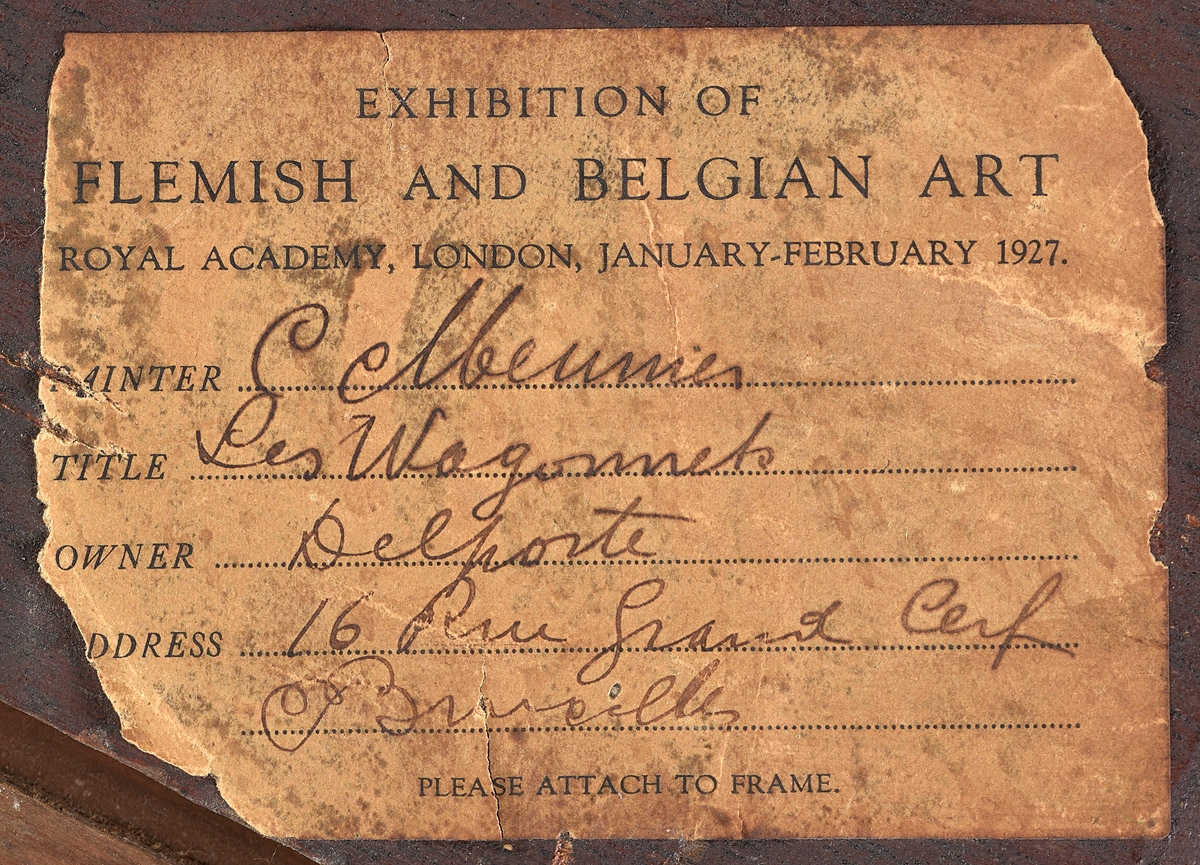 EXHIBITION OF
FLEMISH AND BELGIAN ART
ROYAL ACADEMY, LONDON, JANUARY-FEBRUARY 1927.
PAINTER C Meunier
TITLE Les Wagonnets
OWNER Delporte
DDRESS 16 Rue Grand Cerf
Bruxelles
PLEASE ATTACH TO FRAME.